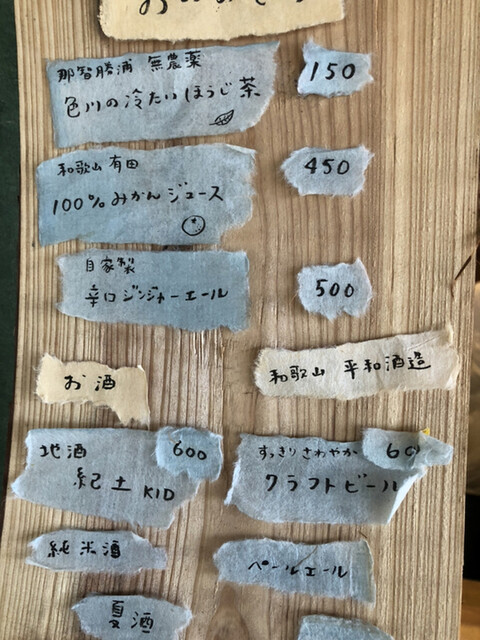 那智勝浦 無農薬
色川の冷たいほうじ茶
150
和歌山 有田
100%みかんジュース
450
自家製
辛口ジンジャーエール
500
お酒
和歌山 平和酒造
地酒
600
紀土 KID
すっきりさわやか
クラフトビール
純米酒
ペールエール
夏酒